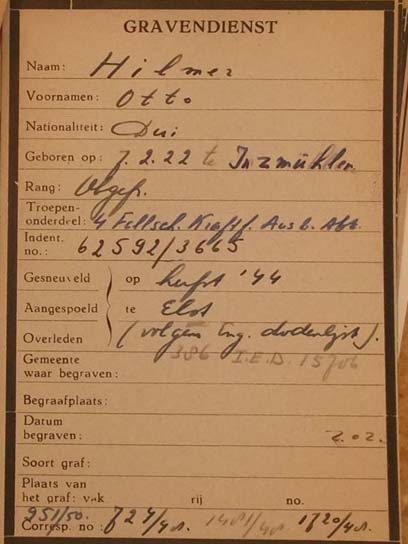 GRAVENDIENST
Naam: Hilmer
Voornamen: Otto
Nationaliteit: Dui
Geboren op: 7.2.22 te Inzmühlen
Rang: Ogefr.
Troepen-
onderdeel: 4 Fallsch. Kraftf. Ausb. Abt.
Indent.
no.: 62592/3665
Gesneuveld op herfst '44
Aangespoeld te Elst
Overleden (volgens Eng. dodenlijst).
Gemeente 386 I.E.D. 15706
waar begraven:
Begraafplaats:
Datum
begraven: z.o.z.
Soort graf:
Plaats van
het graf: vak rij no.
951/50.
Corresp. no: 724/48. 1481/48. 1720/48.